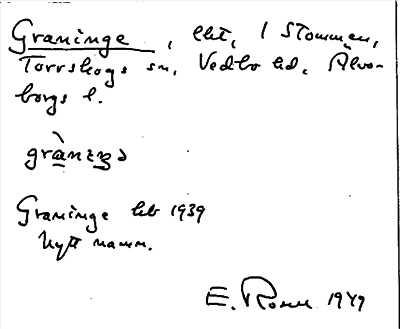 Graninge, lht, 1 Stommen,
Torrskogs sn, Vedbo hd, Älvs-
borgs l.
Graninge hb 1939
Nytt namn.
E. Rosell 1949